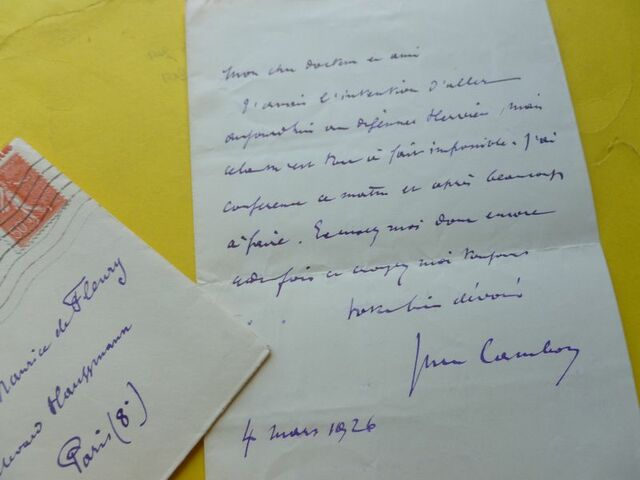 Mon cher docteur et ami
J'avais l'intention d'aller
aujourd'hui au déjeuner Hervieu, mais
cela m'est tout à fait impossible. J'ai
conférence ce matin et après beaucoup
à faire. Excusez moi donc encore
cette fois et croyez moi toujours
votre bien dévoué
Jules Cambon
4 mars 1926
Maurice de Fleury
Haussmann
Paris (8e)